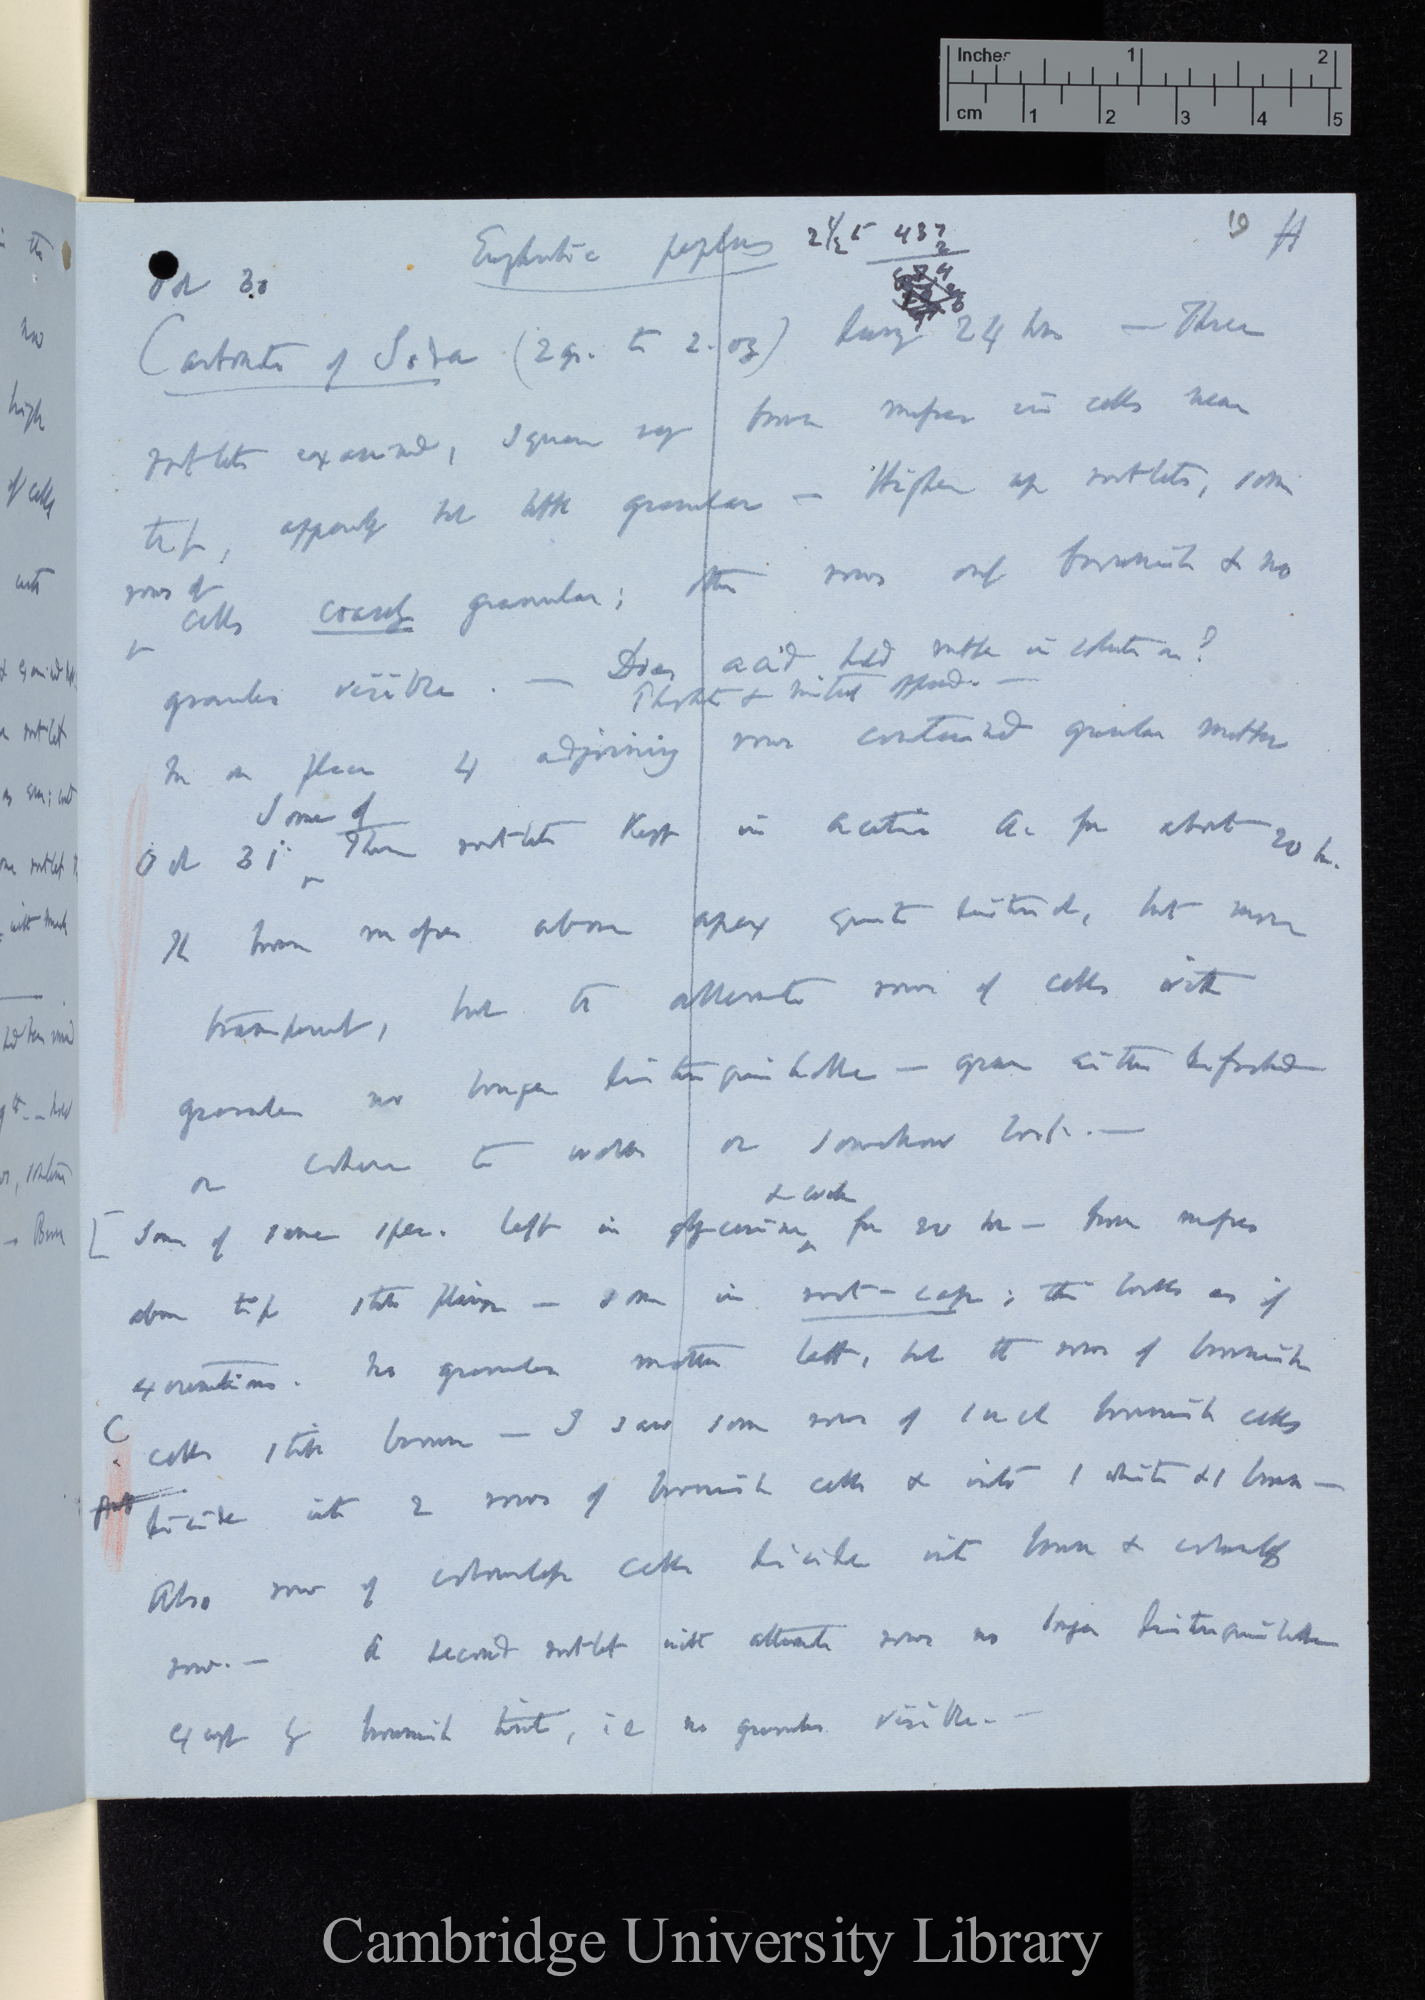 Inches 1 2
cm 1 2 3 4 5
19 H
Euphorbia peplus
2 1/2 437
2
Oct 30
Carbonate of Soda (2 gr. to 2. oz) during 24 hrs — Three
rootlets examined, square very brown masses in cells near
tip, apparently not little granular — Higher up rootlets, some
rows of
cells coarsely granular; other rows only brownish & no
granules visible. — Does acid hold matter in solution?
In one place 4 adjoining rows contained granular matter
Some of
Oct 31. These rootlets kept in acetic A. for about 20 hr.
The brown masses above apex quite distinct, but more
transparent, but the alternate rows of cells with
granules no longer distinguishable — grains either
or adhere to walls or somehow lost. —
& water
[Some of same spec. left in glycerine for 20 hr — brown masses
above tip still plain — some in root-cap; this looks as if
excretions. No granular matter left, but the rows of brownish
cells still brown — I saw some rows of such brownish cells
divide into 2 rows of brownish cells & into 1 white & 1 brown —
Also row of colourless cells divide into brown & colourless
row. — A second rootlet with alternate rows no longer distinguishable
except by brownish tint, i.e. no granules visible. —
Cambridge University Library